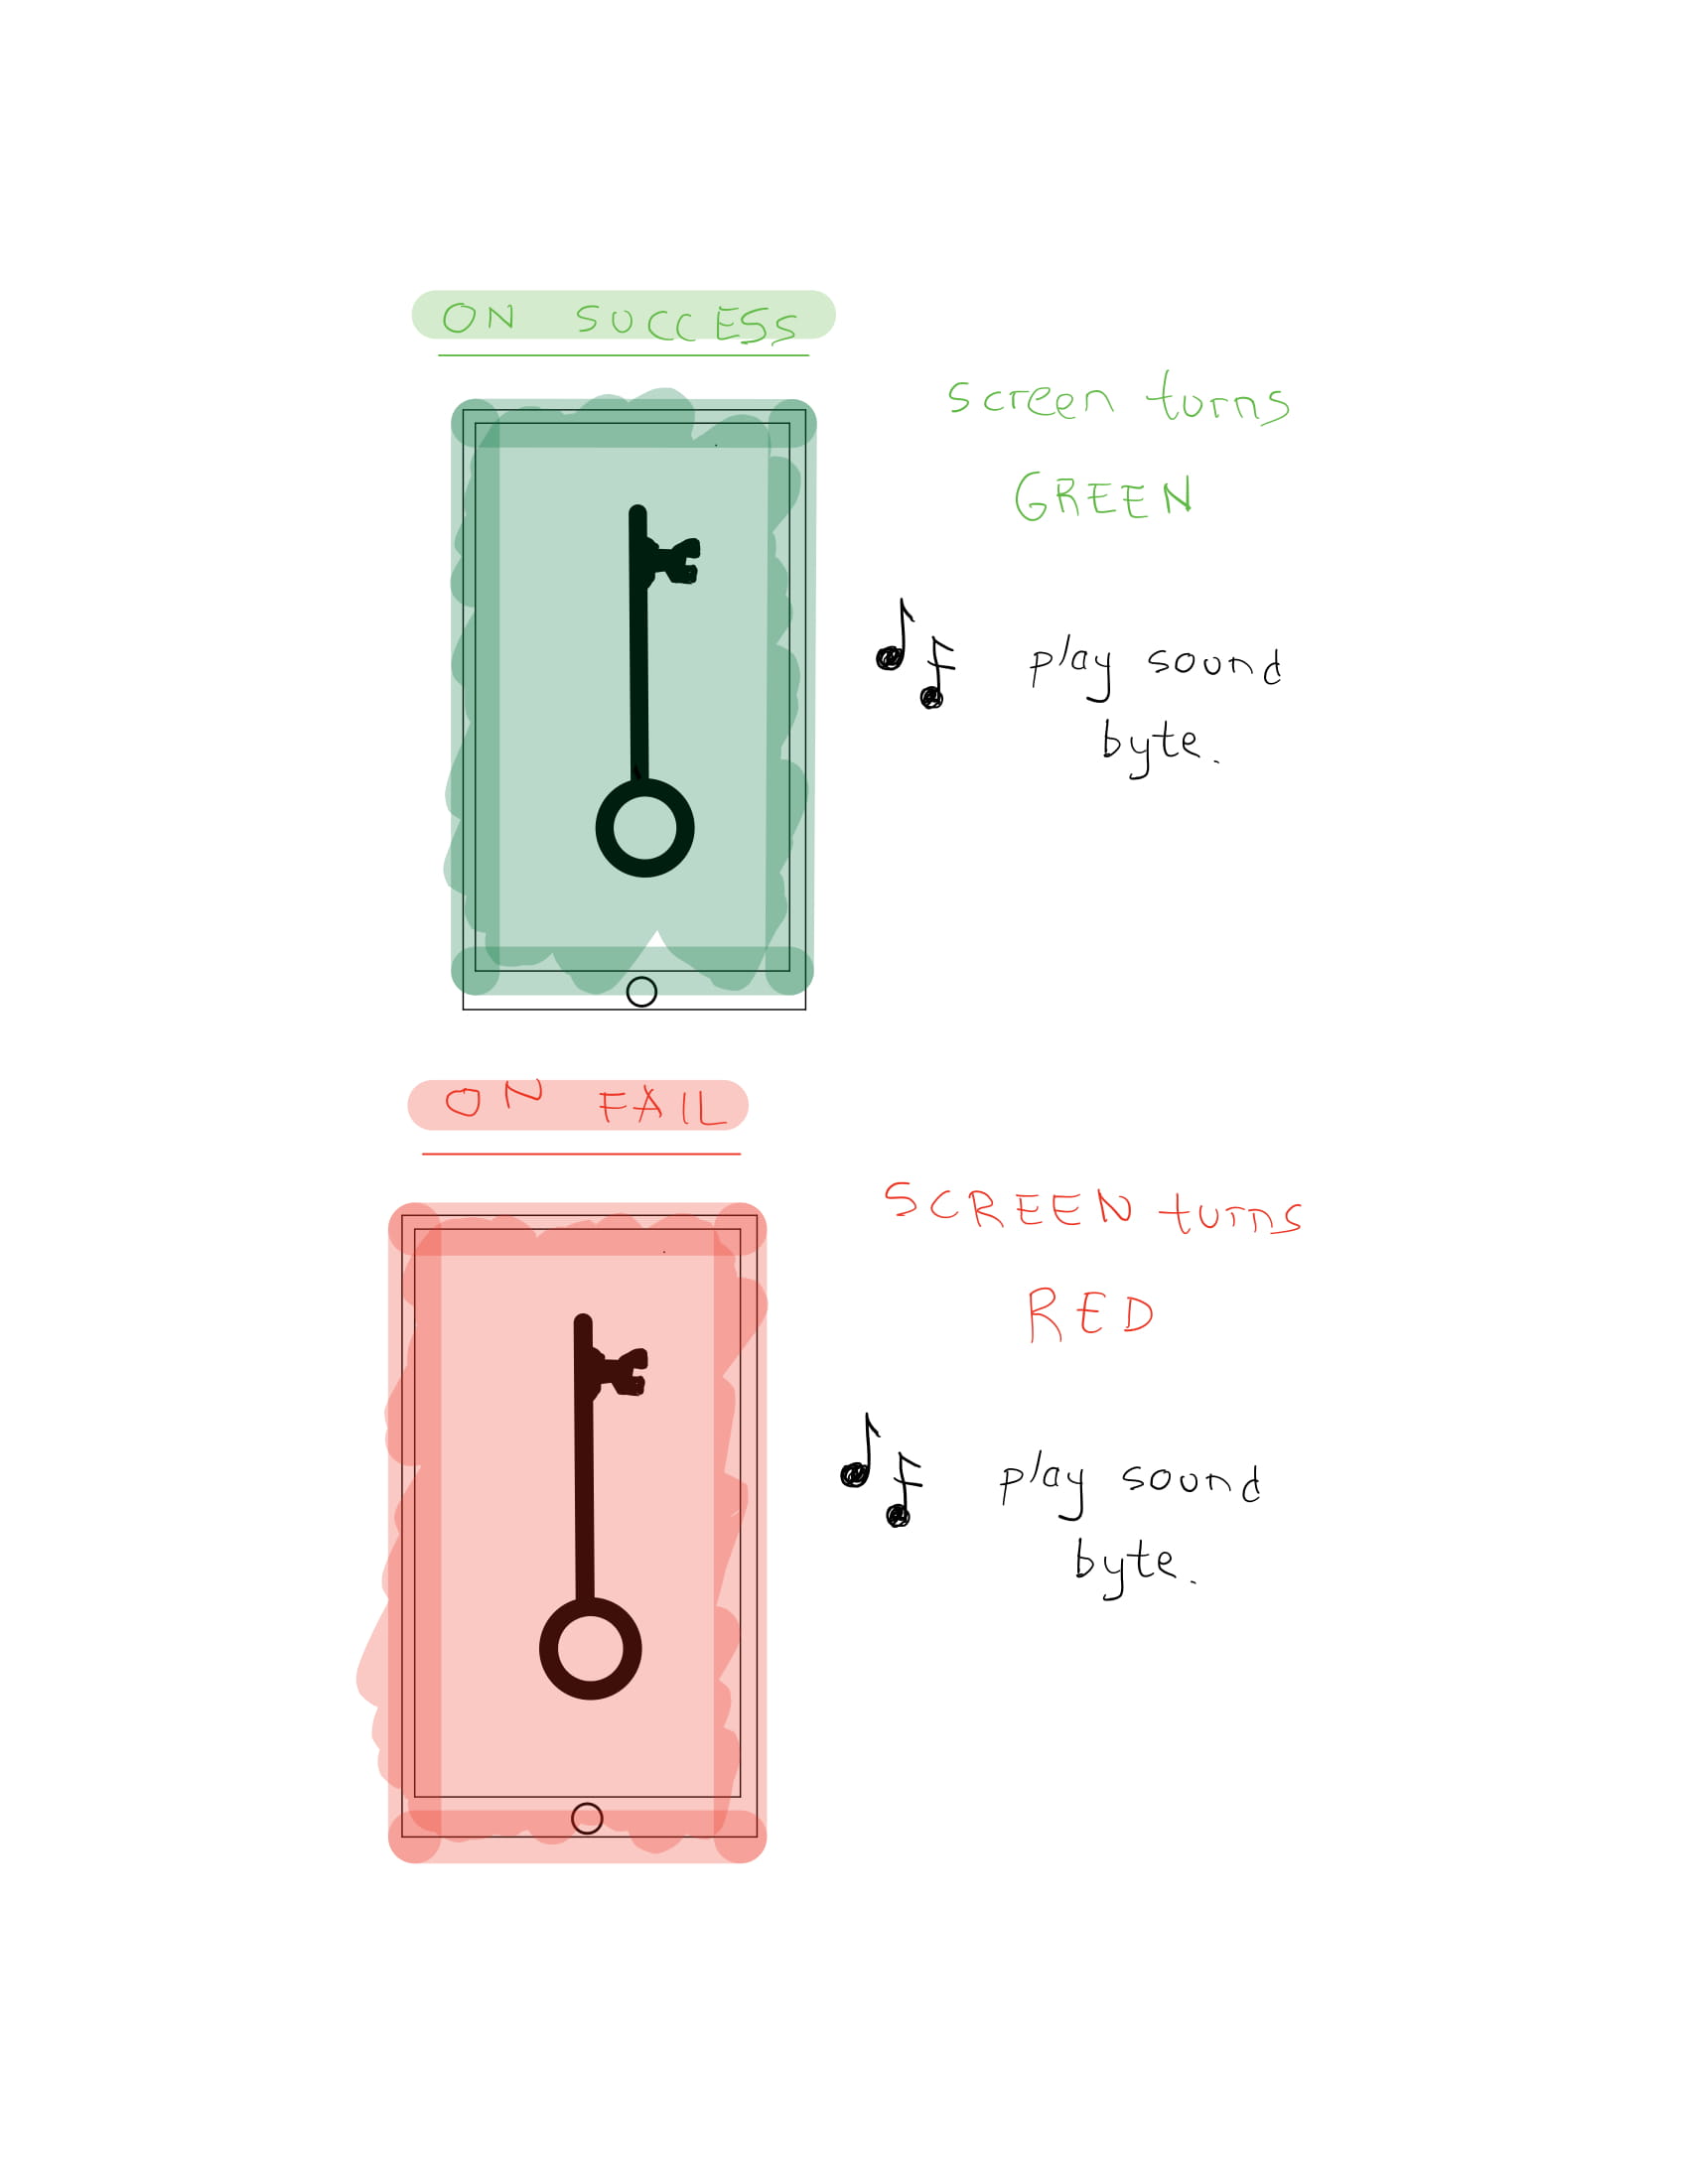 ON SUCCESS
screen turns
GREEN
play sound
byte.
ON FAIL
SCREEN turns
RED
play sound
byte.